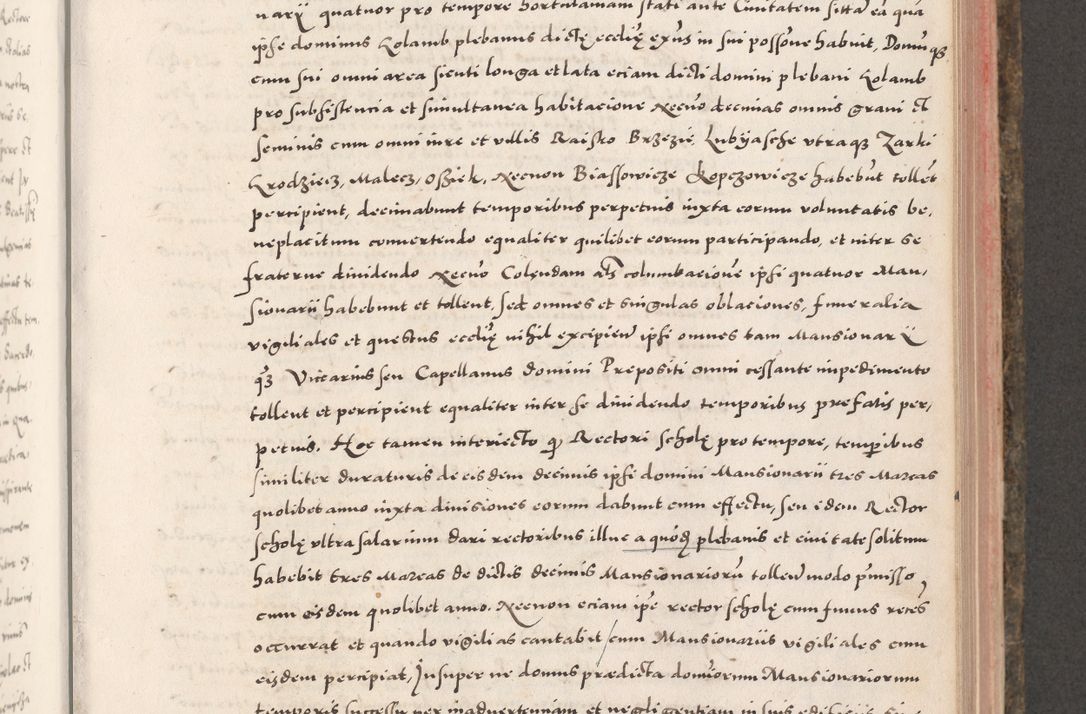 narij quatuor pro tempore hortulaniam stati ante Civitatem sittā ea qua
ipse dominus Kolamb plebanus dictę ecclię exūs in sui possōne habuit, Domūqȝ
cum sui omni area sicuti longa et lata eciam dicti domini plebani Kolamb
pro subsistencia et simultanea habitacione Necnō decimas omnis grani et
seminis cum omni iure et villis Raisko Brzezie, Lubyasche utraqȝ Zarki
Krodziecz, Malecz, Osziek, Necnon Biassowicze Kopczowicze habebūt tollēt
percipient, decimabunt temporibus perpetuis iuxta eorum voluntatis be,
neplacitum convertendo equaliter quilibet eorum participando, et inter se
fraterne dividendo Necnō Colendam als columbacionē ipsi quatuor Man,
sionarii habebunt et tollent, sed omnes et singulas oblaciones, funeralia
vigiliales et questus ecclię nihil excipiendo ipsi omnes tam Mansionarij
qȝ Viccarius seu Capellanus domini Prepositi omni cessante impedimento
tollent et percipient equaliter inter se dividendo temporibus prefatis per,
petuis. Hoc tamen interiecto qȝ Rectori scholę pro tempore, temporibus
similiter duraturis de eisdem decimis ipsi domini Mansionarii tres Marcas
quolibet anno iuxta divisiones eorum dabunt cum effectu, seu idem Rector
scholę ultra salarium dari rectoribus illuc a quōdȝ plebanis et civitate solitum
habebit tres Marcas de dictis decimis Mansionariorū tollendo modo p̄misso,
cum eisdem quolibet anno. Necnon eciam ipē rector scholę cum funus recēs
occurrat et quando vigilias cantabit cum Mansionariis vigiliales cum
eisdem percipiat, Insuper ne domus prædicta domōrum Mansionariorum
temporis successu per inadvertenciam et negligentiam in suis edificiis